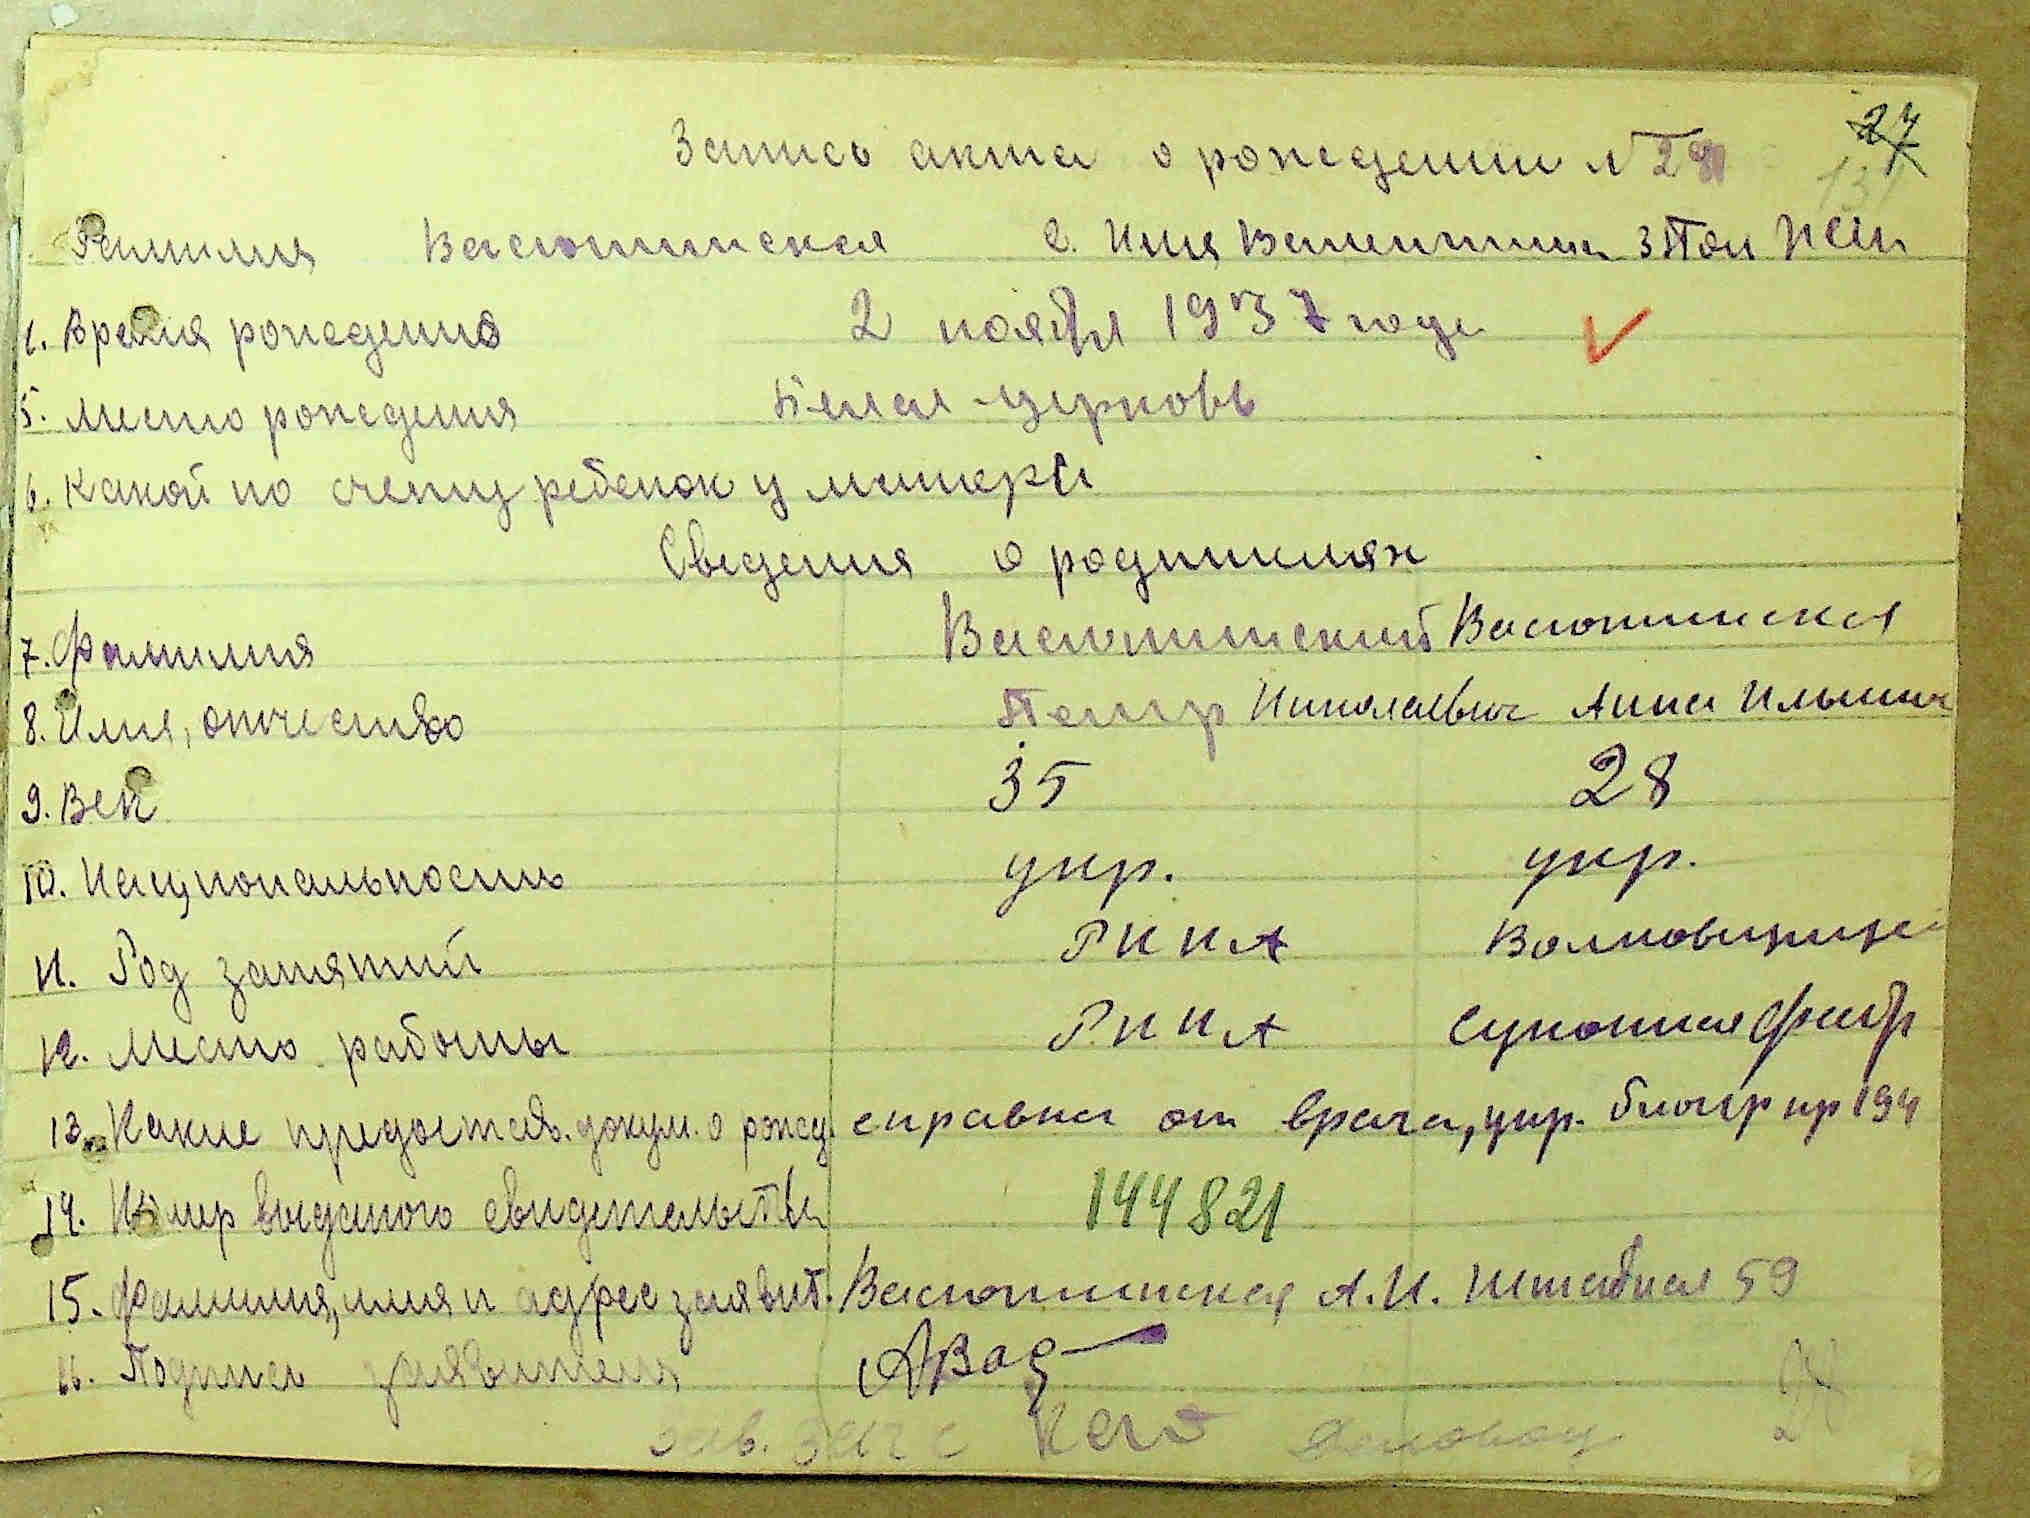 27
Запись акта о рождении N 28
Фамилия Васютинская 2. Имя Валентина 3 Пол жен
1. Время рождения 2 ноября 1937 года
5. Место рождения Белая-церковь
6. Какой по счету ребенок у матери
Сведения о родителях
7. Фамилия Васютинский Васютинская
8. Имя, отчество Петр Николаевич Анна Ильинич
9. Век 35 28
10. Национальность укр. укр.
11. Род занятий РККА
12. Место работы РККА Суконная фабр
13. Какие предостав. докум. о рожд. справка от врача, укр.
14. Номер выданого свидетельства 144821
15. Фамилия, имя и адрес заявит. Васютинская А.И. Штабная 59
16. Подпись заявителя АВас
зав. загс